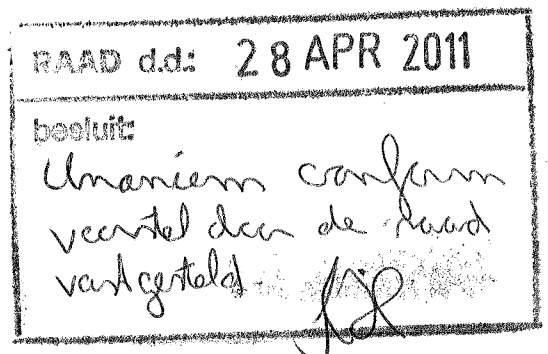 RAAD d.d.: 28 APR 2011
besluit:
Unaniem conform
voorstel door de raad
vastgesteld.